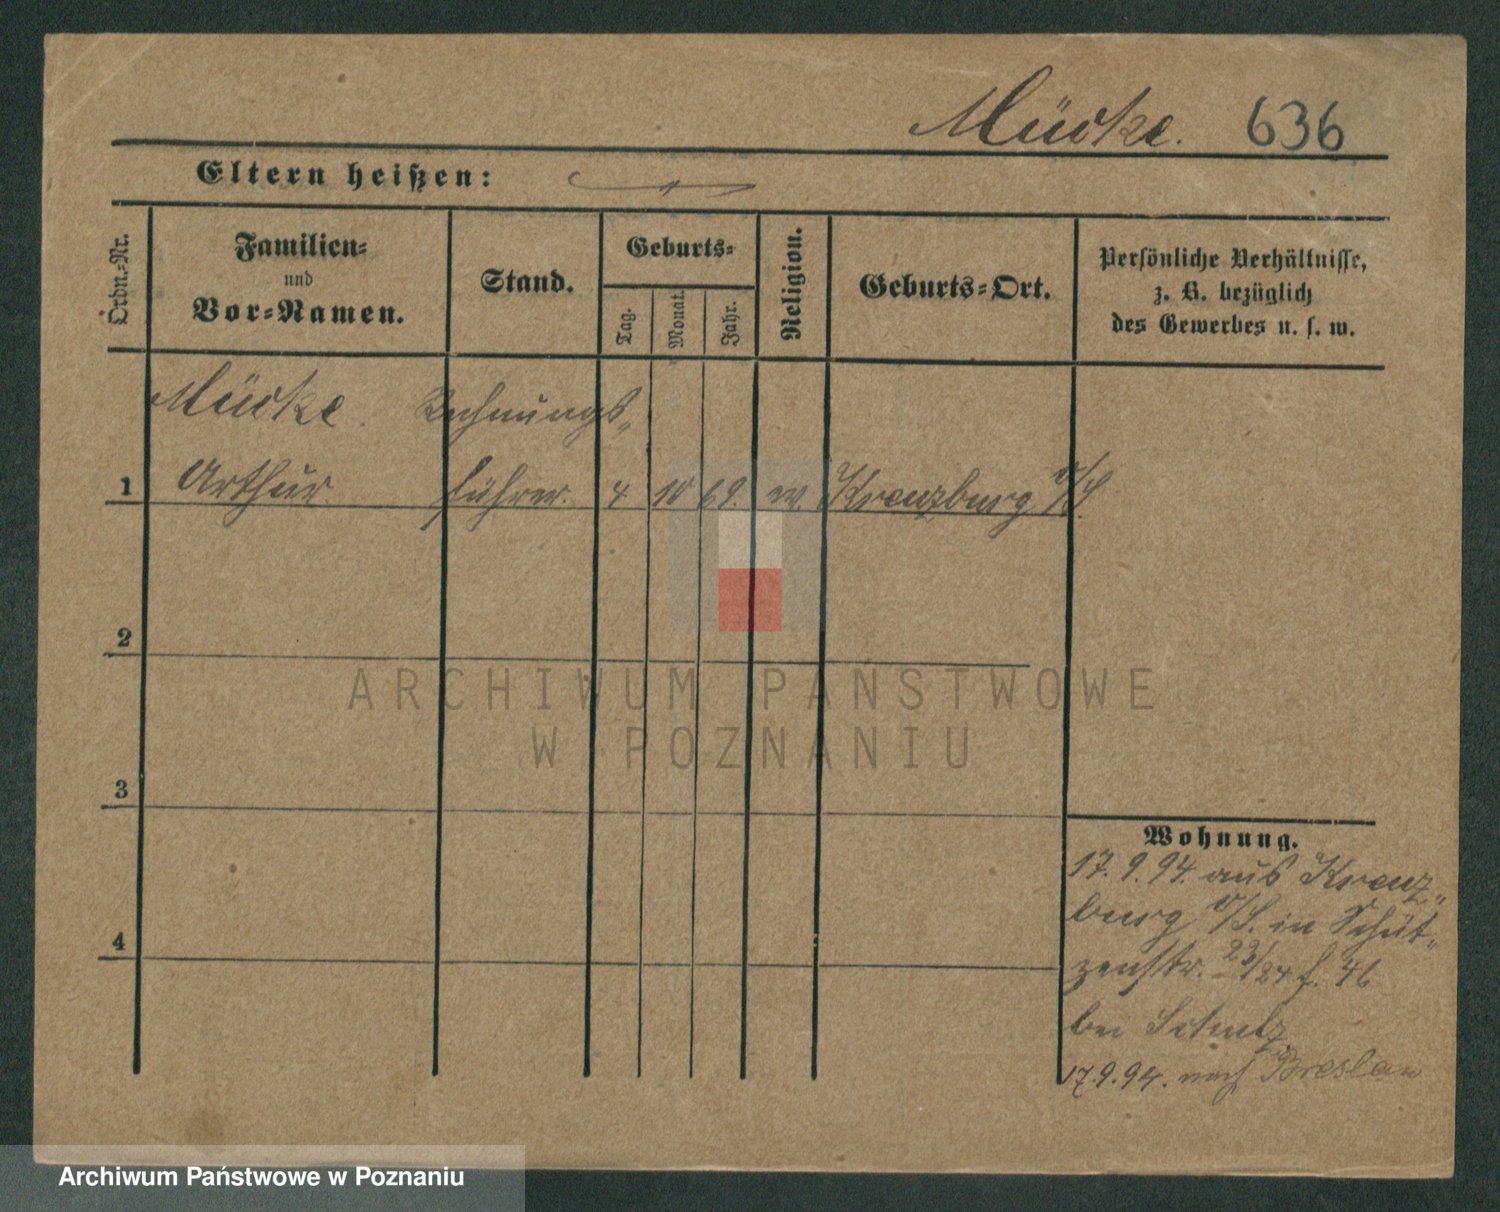 Mücke. 636
Eltern heißen:
Ordn.-Nr.
Familien-
und
Vor-Namen.
Stand.
Geburts-
Tag.
Monat.
Jahr.
Religion.
Geburts-Ort.
Persönliche Verhältnisse,
z. B. bezüglich
des Gewerbes u. s. w.
Mücke. Rechnungs-
1 Arthur führer. 4 10 69. Kreuzburg O/S.
2
3
4
Wohnung.
17.9.94. aus Kreuz-
burg O/S. in Schüt-
zenstr. 23/24 f. 46
bei
17.9.94. nach Breslau
ARCHIWUM PAŃSTWOWE
W POZNANIU
Archiwum Państwowe w Poznaniu